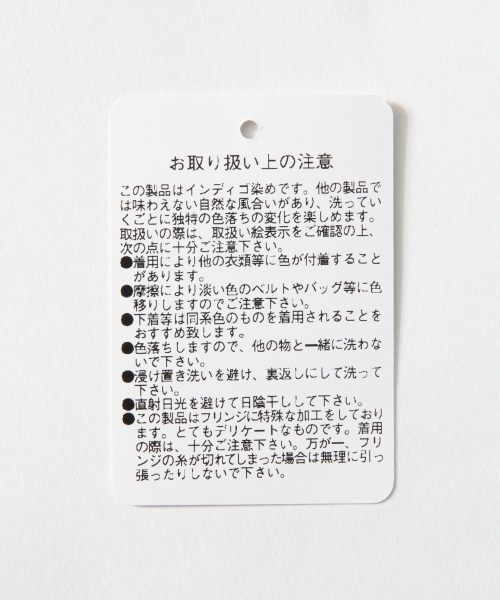 お取り扱い上の注意
この製品はインディゴ染めです。他の製品で
は味わえない自然な風合いがあり、洗ってい
くごとに独特の色落ちの変化を楽しめます。
取扱いの際は、取扱い絵表示をご確認の上、
次の点に十分ご注意下さい。
●着用により他の衣類等に色が付着すること
があります。
●摩擦により淡い色のベルトやバッグ等に色
移りしますのでご注意下さい。
●下着等は同系色のものを着用されることを
おすすめ致します。
●色落ちしますので、他の物と一緒に洗わな
いで下さい。
●浸け置き洗いを避け、裏返しにして洗って
下さい。
●直射日光を避けて日陰干しして下さい。
●この製品はフリンジに特殊な加工をしており
ます。とてもデリケートなものです。着用
の際は、十分ご注意下さい。万が一、フリ
ンジの糸が切れてしまった場合は無理に引っ
張ったりしないで下さい。